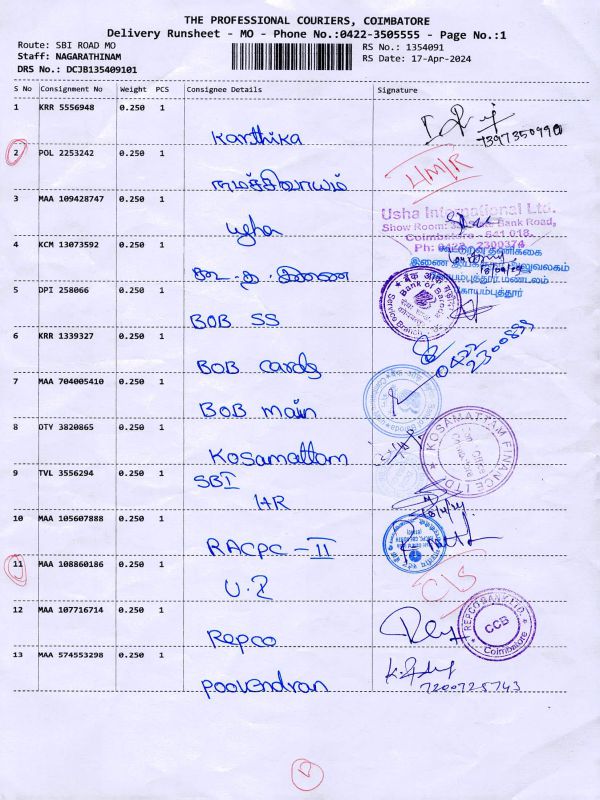 THE PROFESSIONAL COURIERS, COIMBATORE
Delivery Runsheet - MO - Phone No.:0422-3505555 - Page No.:1
Route: SBI ROAD MO
RS No.: 1354091
Staff: NAGARATHINAM
RS Date: 17-Apr-2024
DRS No.: DCJB135409101
S No Consignment No Weight PCS Consignee Details Signature
1 KRR 5556948 0.250 1
Karthika
2 POL 2253242 0.250 1
3 MAA 109428747 0.250 1
Usha International Ltd.
Coimbatore - 641 018.
Ph: 0422 - 2300374
4 KCM 13073592 0.250 1
கோயம்புத்தூர்
5 DPI 258066 0.250 1
Bank of Baroda
BOB SS
6 KRR 1339327 0.250 1
BOB cards
7 MAA 704005410 0.250 1
BOB main
8 OTY 3820865 0.250 1
KOSAMATTAM FINANCE LTD
Kosamattam
9 TVL 3556294 0.250 1
SBI
HR
10 MAA 105607888 0.250 1
RACPC - II
11 MAA 108860186 0.250 1
C/S
12 MAA 107716714 0.250 1
REPCO BANK LTD.
CCB
Coimbatore
Repco
13 MAA 574553298 0.250 1
Poovendran
7200725743